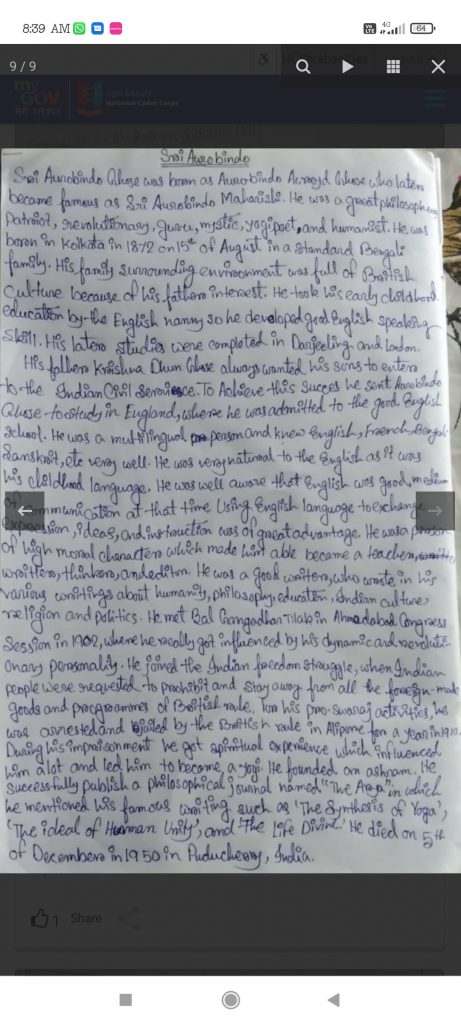 8:39 AM
4G
64
9 / 9
my
GOV
मेरी सरकार
National Cadet Corps
Sri Aurobindo
Sri Aurobindo Ghose was born as Aurobindo Acroyd Ghose who later
became famous as Sri Aurobindo Maharishi. He was a great philosopher,
Patriot, revolutionary, guru, mystic, yogi poet, and humanist. He was
born in Kolkata in 1872 on 15th of August in a standard Bengali
family. His family surrounding environment was full of British
Culture because of his fathers interest. He took his early childhood
education by the English nanny so he developed good English speaking
Skill. His later studies were completed in Darjeeling and London.
His father Krishna Dhun Ghose always wanted his sons to enter
to the Indian Civil Service. To Achieve this succes he sent Aurobindo
Ghose to study in England, where he was admitted to the good English
School. He was a multilingual person and knew English, French, Bangali
Sanskrit, etc very well. He was very natural to the English as it was
his childhood language. He was well aware that English was good medium
of communication at that time Using English language to exchange
expression, ideas, and instruction was of great advantage. He was a person
of high moral character which made him able became a teacher,
writer, thinker, and editor. He was a good writer, who wrote in his
various writings about humanity, philosophy, education, Indian culture,
religion and politics. He met Bal Gangadhar Tilak in Ahmadabad Congress
Session in 1902, where he really got influenced by his dynamic and revoluti-
onary personality. He joined the Indian freedom struggle, when Indian
people were requested to prohibit and stay away from all the foreign-made
goods and programmes of British rule. For his pro-swaraj activities, he
was arrested and jailed by the British rule in Alipore for a year in 1910.
During his imprisonment he got spiritual experience which influenced
him a lot and led him to become a yogi. He founded an ashram. He
successfully publish a philosophical journal named "The Arya" in which
he mentioned his famous writing such as 'The Synthesis of Yoga',
'The ideal of Human Unity', and 'The Life Divine.' He died on 5th
of December in 1950 in Puducherry, India.
1 Share